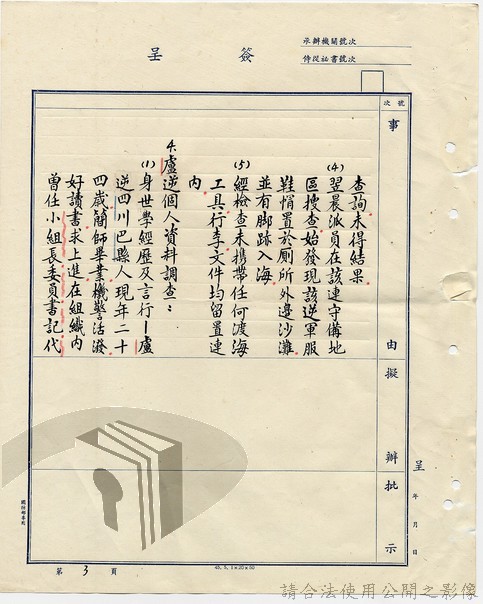 簽呈
承辦機關號次
侍從祕書號次
號次
事
由
擬
辦
批
示
查詢未得結果。
(4)翌晨派員在該連守備地
區搜查始發現該逆軍服
鞋帽置於廁所外邊沙灘。
並有脚跡入海。
(5)經檢查未携帶任何渡海
工具行李文件均留置連
內。
4.盧逆個人資料調查：
(1)身世學經歷及言行－盧
逆四川巴縣人現年二十
四歲簡師畢業機警活潑
好讀書求上進在組織內
曾任小組長委員書記代
呈
年
月
日
第3頁
請合法使用公開之影像